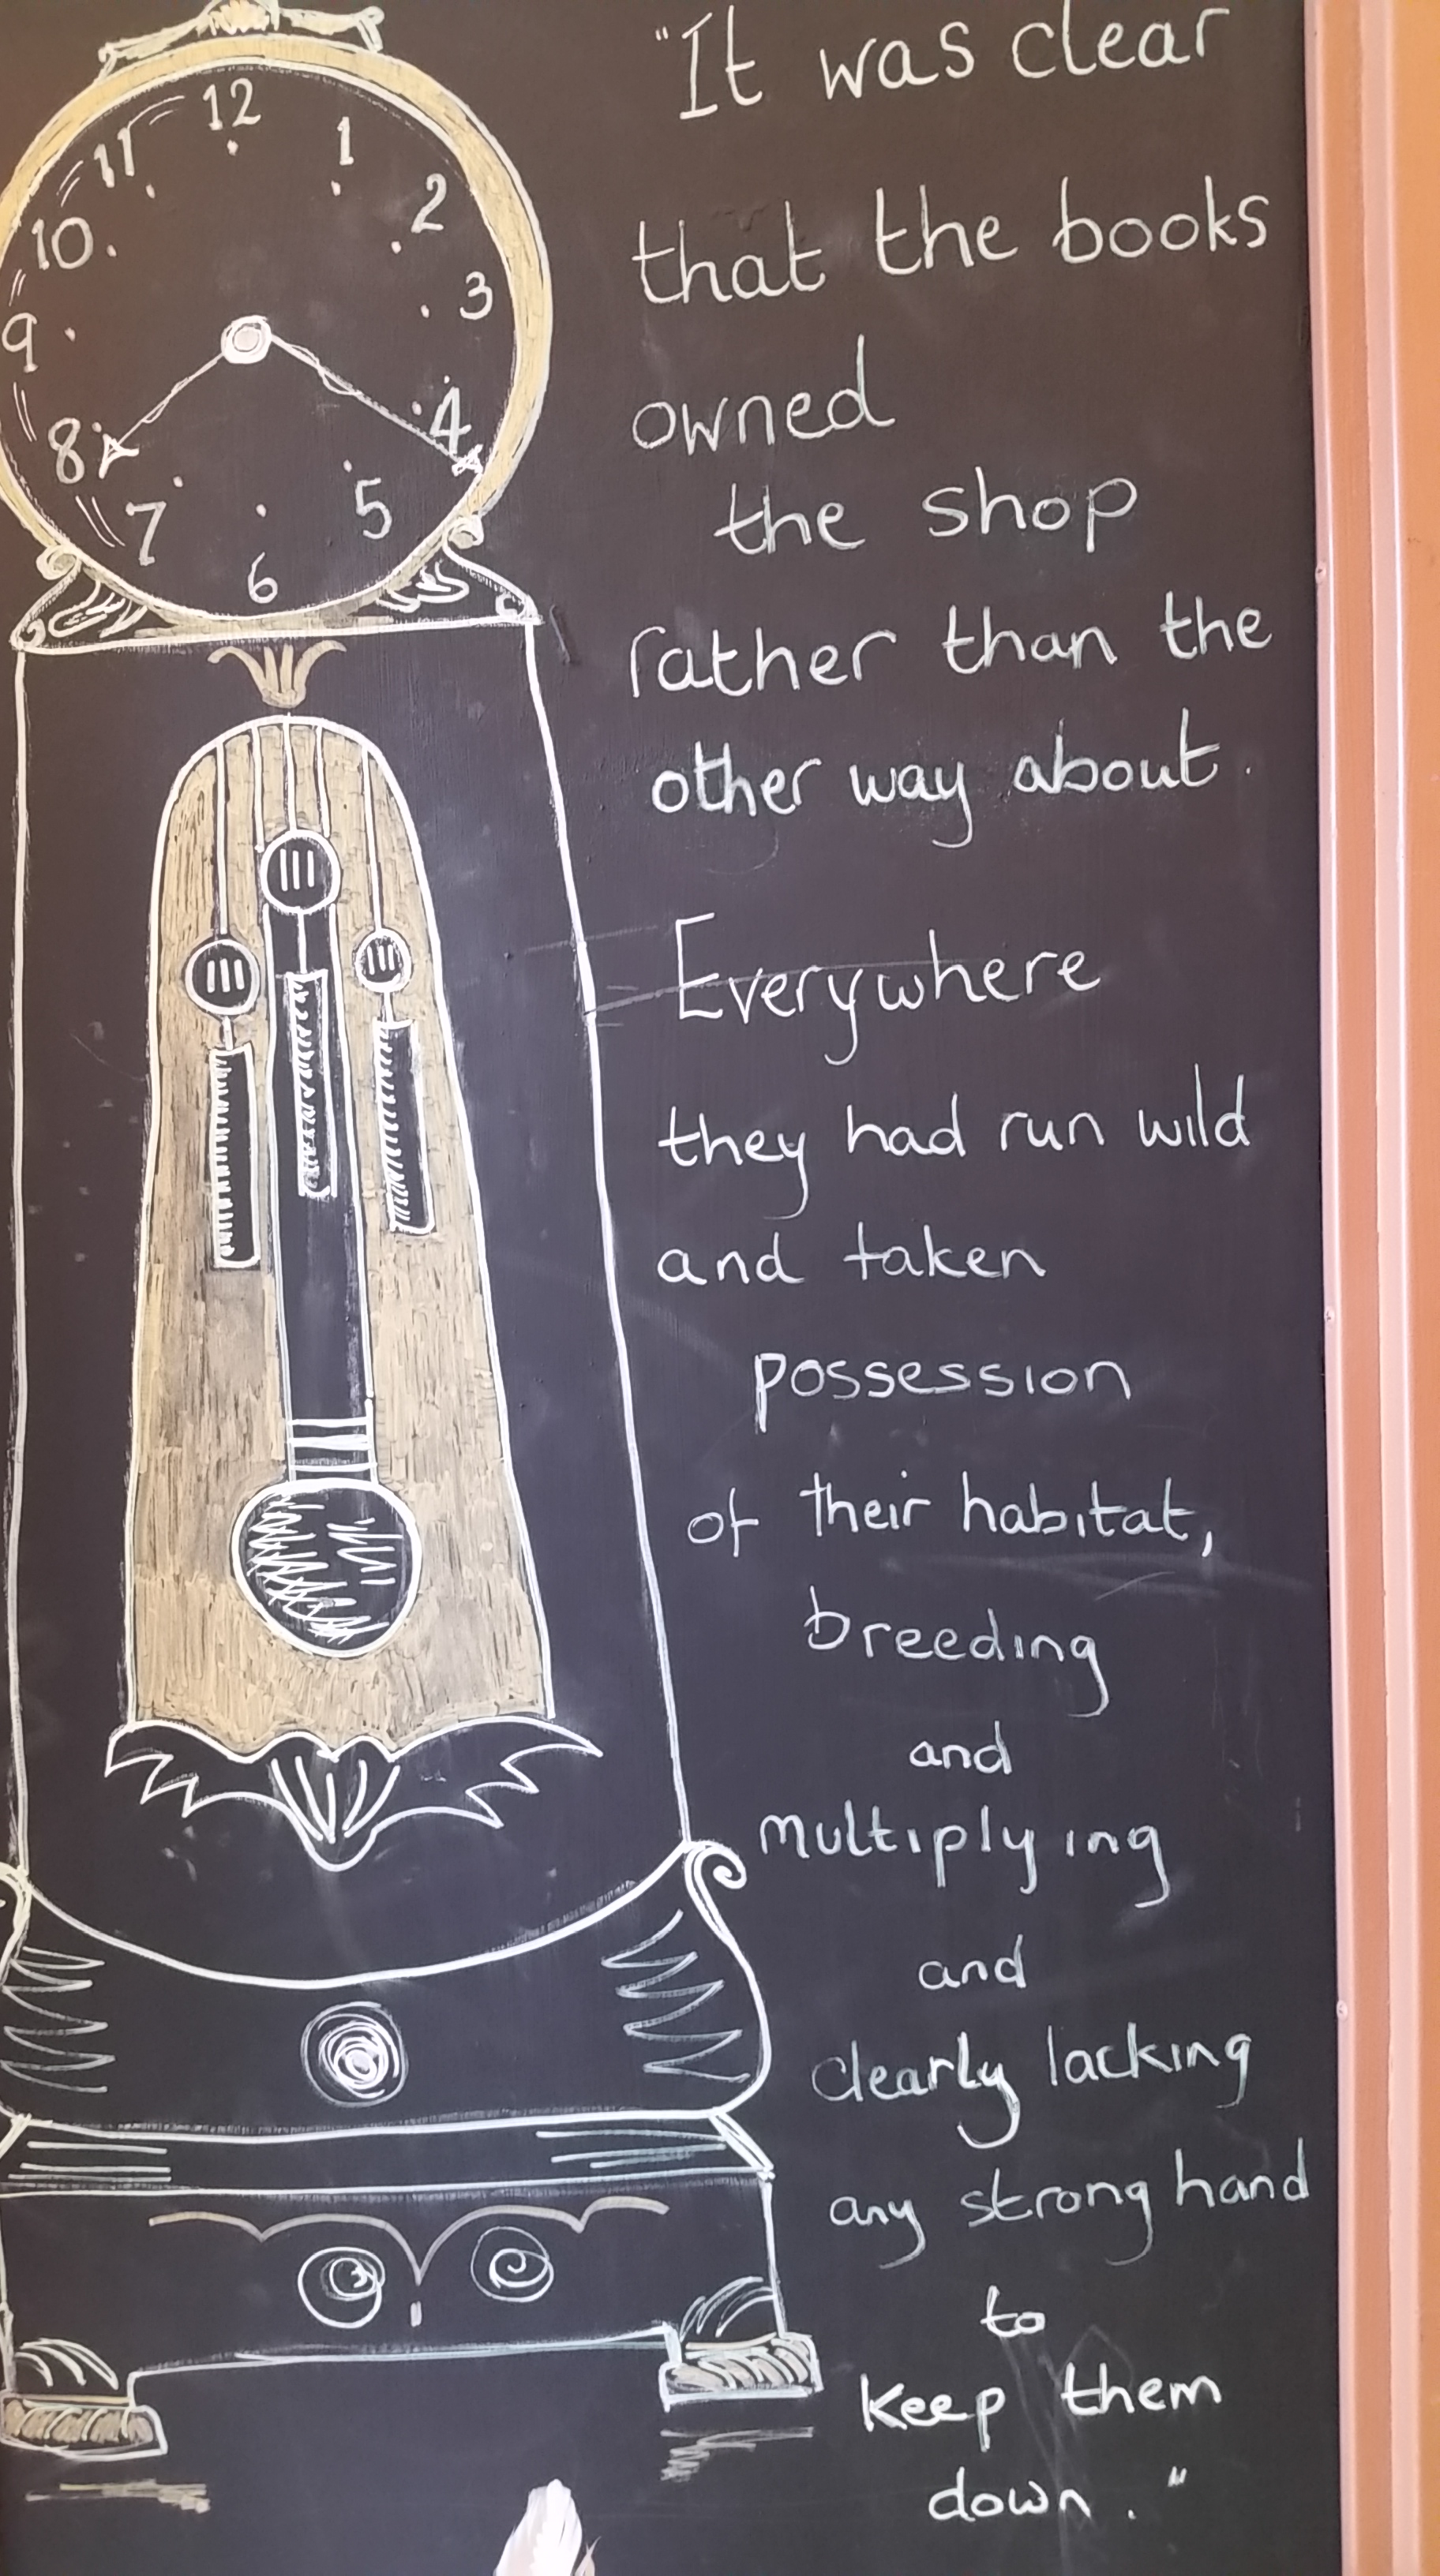 12
11
1
10
2
9
3
8
4
7
5
6
"It was clear
that the books
owned
the shop
rather than the
other way about.
Everywhere
they had run wild
and taken
possession
of their habitat,
breeding
and
multiplying
and
clearly lacking
any strong hand
to
keep them
down."